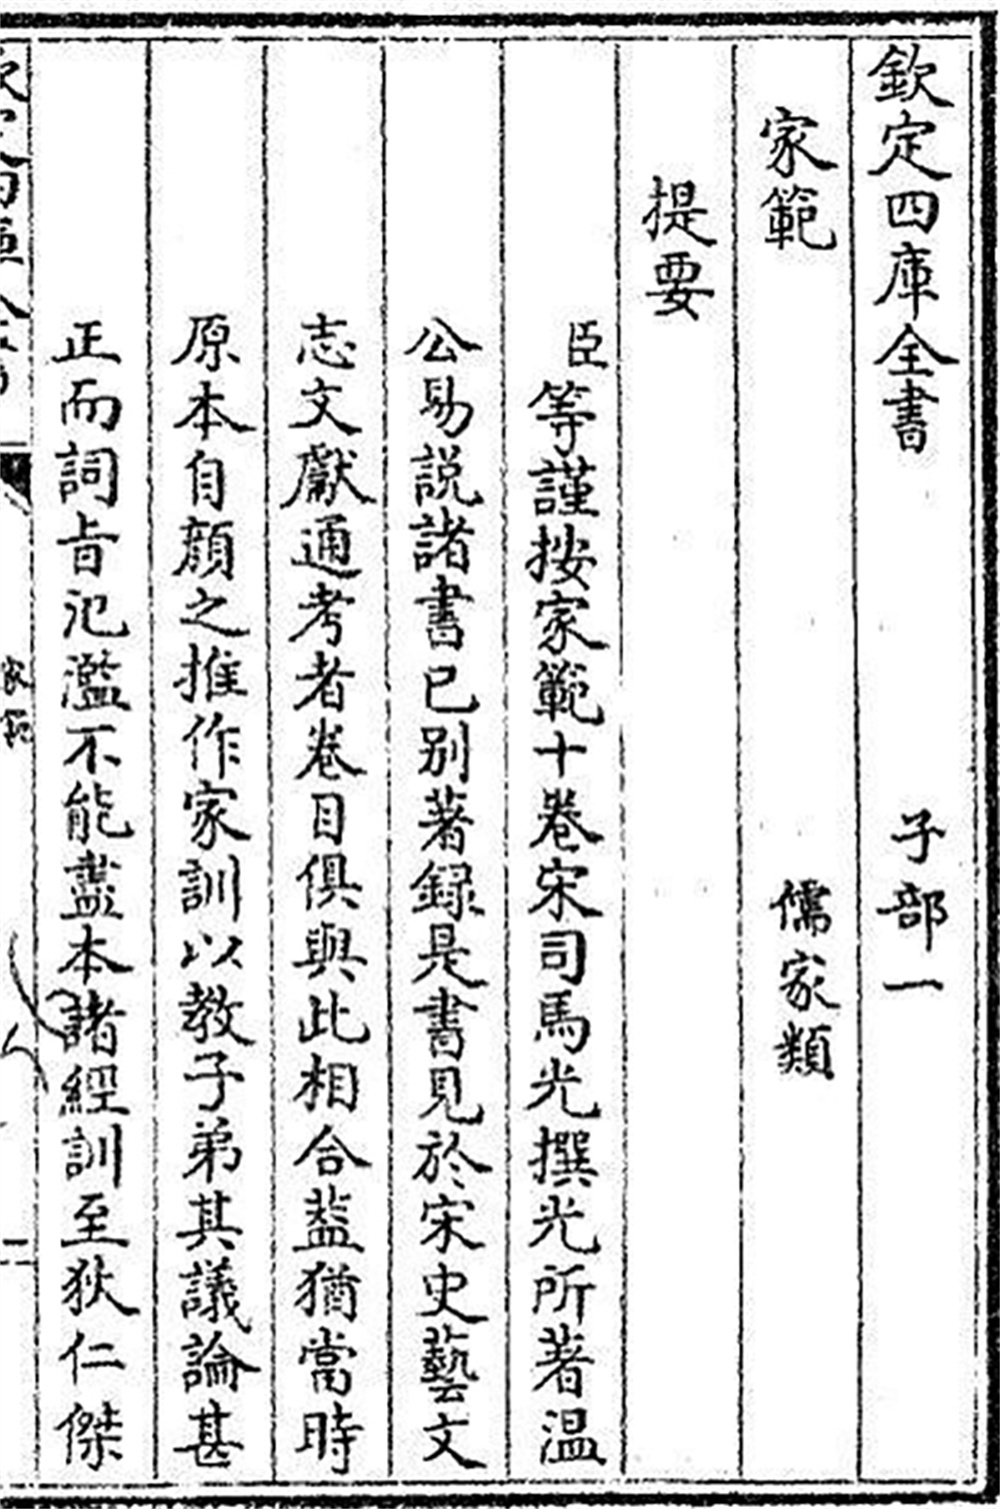 欽定四庫全書 子部一
家範 儒家類
提要
臣等謹按家範十卷宋司馬光撰光所著温
公易説諸書已别著録是書見於宋史藝文
志文獻通考者卷目俱與此相合葢猶當時
原本自顔之推作家訓以教子弟其議論甚
正而詞㫖氾濫不能盡本諸經訓至狄仁傑
家範